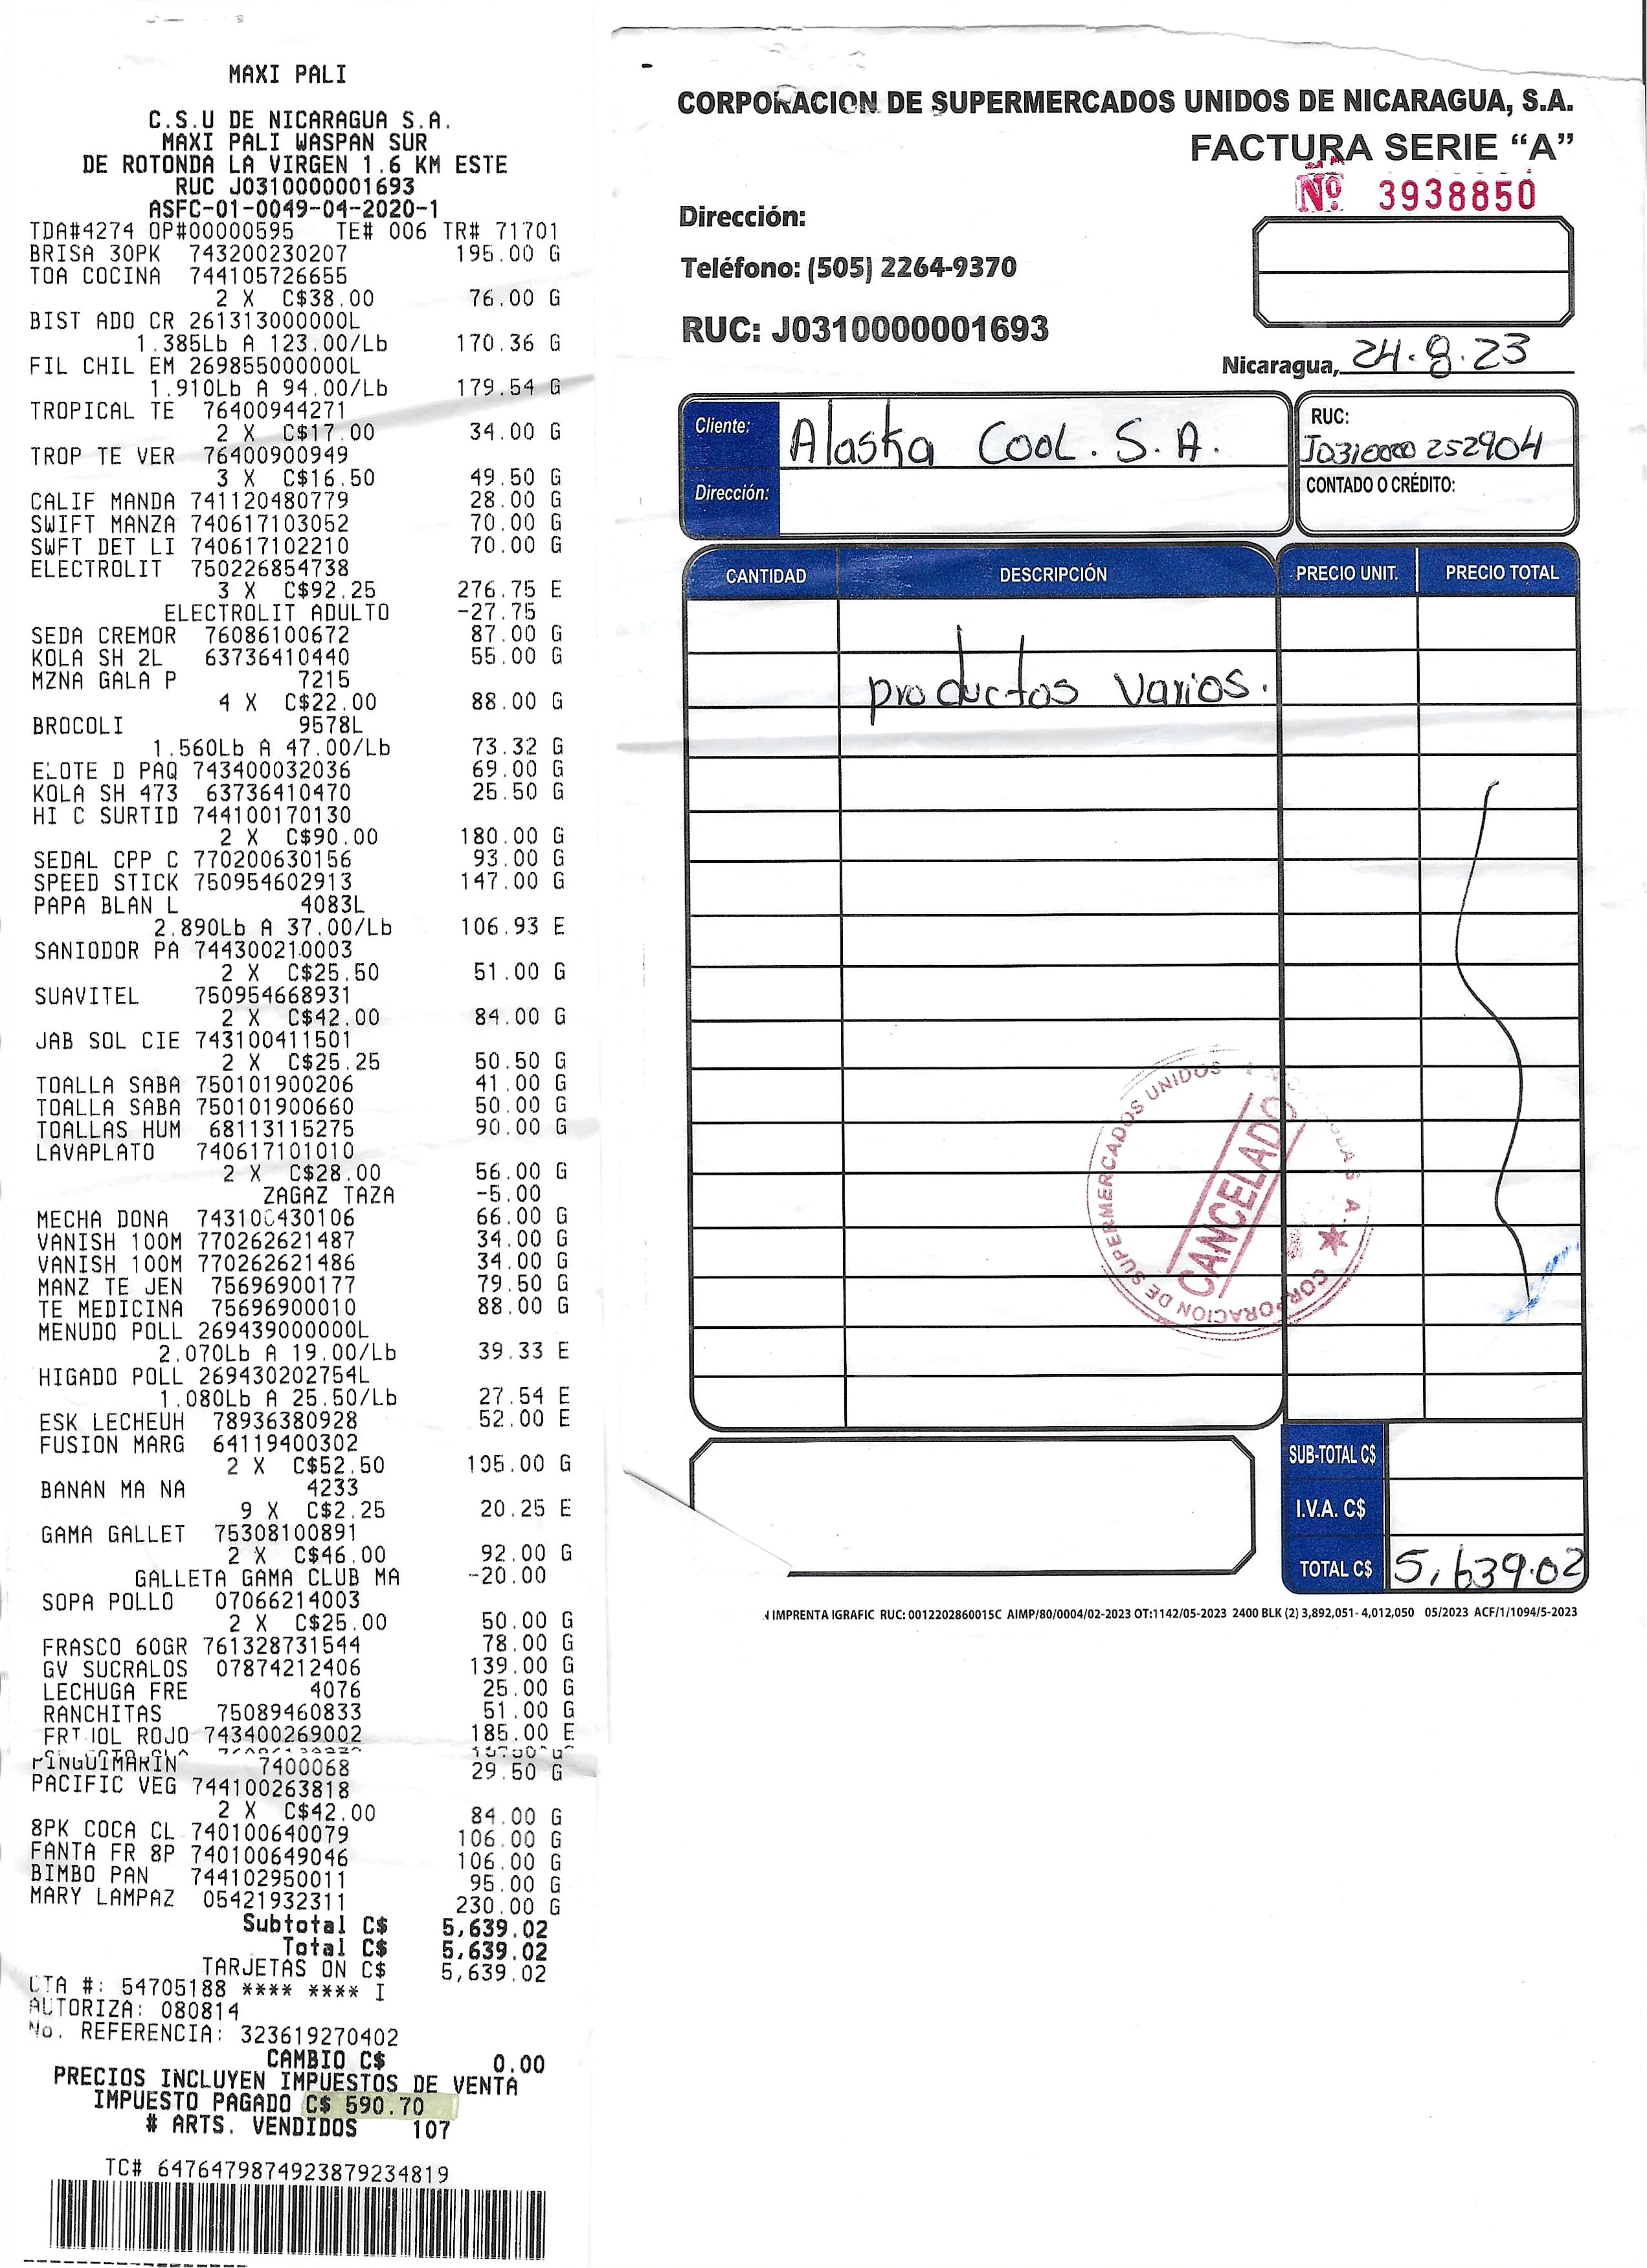 MAXI PALI
C.S.U DE NICARAGUA S.A.
MAXI PALI WASPAN SUR
DE ROTONDA LA VIRGEN 1.6 KM ESTE
RUC J0310000001693
ASFC-01-0049-04-2020-1
TDA#4274 OP#00000595 TE# 006 TR# 71701
BRISA 30PK 743200230207 195.00 G
TOA COCINA 744105726655
2 X C$38.00 76.00 G
BIST ADO CR 261313000000L
1.385Lb A 123.00/Lb 170.36 G
FIL CHIL EM 269855000000L
1.910Lb A 94.00/Lb 179.54 G
TROPICAL TE 76400944271
2 X C$17.00 34.00 G
TROP TE VER 76400900949
3 X C$16.50 49.50 G
CALIF MANDA 741120480779 28.00 G
SWIFT MANZA 740617103052 70.00 G
SWFT DET LI 740617102210 70.00 G
ELECTROLIT 750226854738
3 X C$92.25 276.75 E
ELECTROLIT ADULTO -27.75
SEDA CREMOR 76086100672 87.00 G
KOLA SH 2L 63736410440 55.00 G
MZNA GALA P 7215
4 X C$22.00 88.00 G
BROCOLI 9578L
1.560Lb A 47.00/Lb 73.32 G
ELOTE D PAQ 743400032036 69.00 G
KOLA SH 473 63736410470 25.50 G
HI C SURTID 744100170130
2 X C$90.00 180.00 G
SEDAL CPP C 770200630156 93.00 G
SPEED STICK 750954602913 147.00 G
PAPA BLAN L 4083L
2.890Lb A 37.00/Lb 106.93 E
SANIODOR PA 744300210003
2 X C$25.50 51.00 G
SUAVITEL 750954668931
2 X C$42.00 84.00 G
JAB SOL CIE 743100411501
2 X C$25.25 50.50 G
TOALLA SABA 750101900206 41.00 G
TOALLA SABA 750101900660 50.00 G
TOALLAS HUM 68113115275 90.00 G
LAVAPLATO 740617101010
2 X C$28.00 56.00 G
ZAGAZ TAZA -5.00
MECHA DONA 743100430106 66.00 G
VANISH 100M 770262621487 34.00 G
VANISH 100M 770262621486 34.00 G
MANZ TE JEN 75696900177 79.50 G
TE MEDICINA 75696900010 88.00 G
MENUDO POLL 269439000000L
2.070Lb A 19.00/Lb 39.33 E
HIGADO POLL 269430202754L
1.080Lb A 25.50/Lb 27.54 E
ESK LECHEUH 78936380928 52.00 E
FUSION MARG 64119400302
2 X C$52.50 105.00 G
BANAN MA NA 4233
9 X C$2.25 20.25 E
GAMA GALLET 75308100891
2 X C$46.00 92.00 G
GALLETA GAMA CLUB MA -20.00
SOPA POLLO 07066214003
2 X C$25.00 50.00 G
FRASCO 60GR 761328731544 78.00 G
GV SUCRALOS 07874212406 139.00 G
LECHUGA FRE 4076 25.00 G
RANCHITAS 75089460833 51.00 G
FRIJOL ROJO 743400269002 185.00 E
PINGUIMARIN 7400068 29.50 G
PACIFIC VEG 744100263818
2 X C$42.00 84.00 G
8PK COCA CL 740100640079 106.00 G
FANTA FR 8P 740100649046 106.00 G
BIMBO PAN 744102950011 95.00 G
MARY LAMPAZ 05421932311 230.00 G
Subtotal C$ 5,639.02
Total C$ 5,639.02
TARJETAS ON C$ 5,639.02
CTA #: 54705188 **** **** I
AUTORIZA: 080814
No. REFERENCIA: 323619270402
CAMBIO C$ 0.00
PRECIOS INCLUYEN IMPUESTOS DE VENTA
IMPUESTO PAGADO C$ 590.70
# ARTS. VENDIDOS 107
TC# 6476479874923879234819
CORPORACION DE SUPERMERCADOS UNIDOS DE NICARAGUA, S.A.
FACTURA SERIE "A"
Nº 3938850
Dirección:
Teléfono: (505) 2264-9370
RUC: J0310000001693
Nicaragua, 24.8.23
Cliente: Alaska Cool. S. A.
RUC: J0310000 252904
Dirección:
CONTADO O CRÉDITO:
CANTIDAD DESCRIPCIÓN PRECIO UNIT. PRECIO TOTAL
productos varios.
CORPORACION DE SUPERMERCADOS UNIDOS
CANCELADO
SUB-TOTAL C$
I.V.A. C$
TOTAL C$ 5,639.02
IMPRENTA IGRAFIC RUC: 0012202860015C AIMP/80/0004/02-2023 OT:1142/05-2023 2400 BLK (2) 3,892,051- 4,012,050 05/2023 ACF/1/1094/5-2023